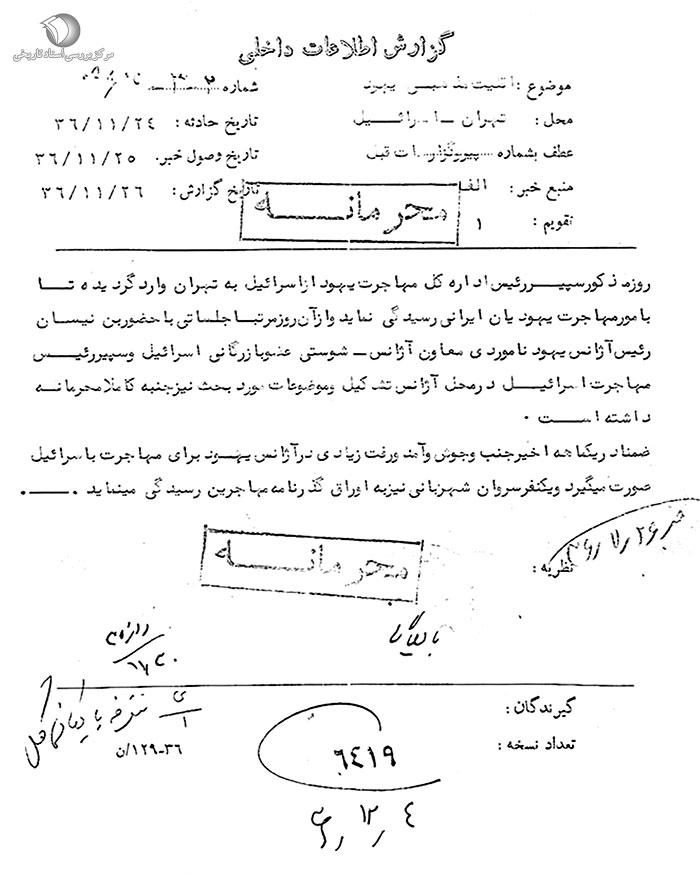 مرکز بررسی اسناد تاریخی
گزارش اطلاعات داخلی
موضوع : اقلیت مذهبی یهود
شماره
محل : تهران - اسرائیل
تاریخ حادثه : ۳۶/۱۱/۲۴
عطف بشماره پیروگزارشات قبل
تاریخ وصول خبر. ۳۶/۱۱/۲۵
منبع خبر : الف
تاریخ گزارش : ۳۶/۱۱/۲۶
تقویم : ۱
محرمانه
روزمذکورسپیررئیس اداره کل مهاجرت یهود ازاسرائیل به تهران واردگردیده تا
بامورمهاجرت یهودیان ایرانی رسیدگی نماید وازآن روزمرتبا جلساتی با حضوربن نیسان
رئیس آژانس یهود ناموردی معاون آژانس - شوستی عضوبازرگانی اسرائیل وسپیررئیس
مهاجرت اسرائیل درمحل آژانس تشکیل وموضوعات مورد بحث نیزجنبه کاملا محرمانه
داشته است .
ضمنا دریکماهه اخیرجنب وجوش وآمد ورفت زیادی درآژانس یهود برای مهاجرت باسرائیل
صورت میگیرد ویکنفرسروان شهربانی نیزبه اوراق گذرنامه مهاجرین رسیدگی مینماید .
نظریه :
محرمانه
بایگانی
گیرندگان :
تعداد نسخه :
۳۶-۱۲۹/ن
۶۴۱۹